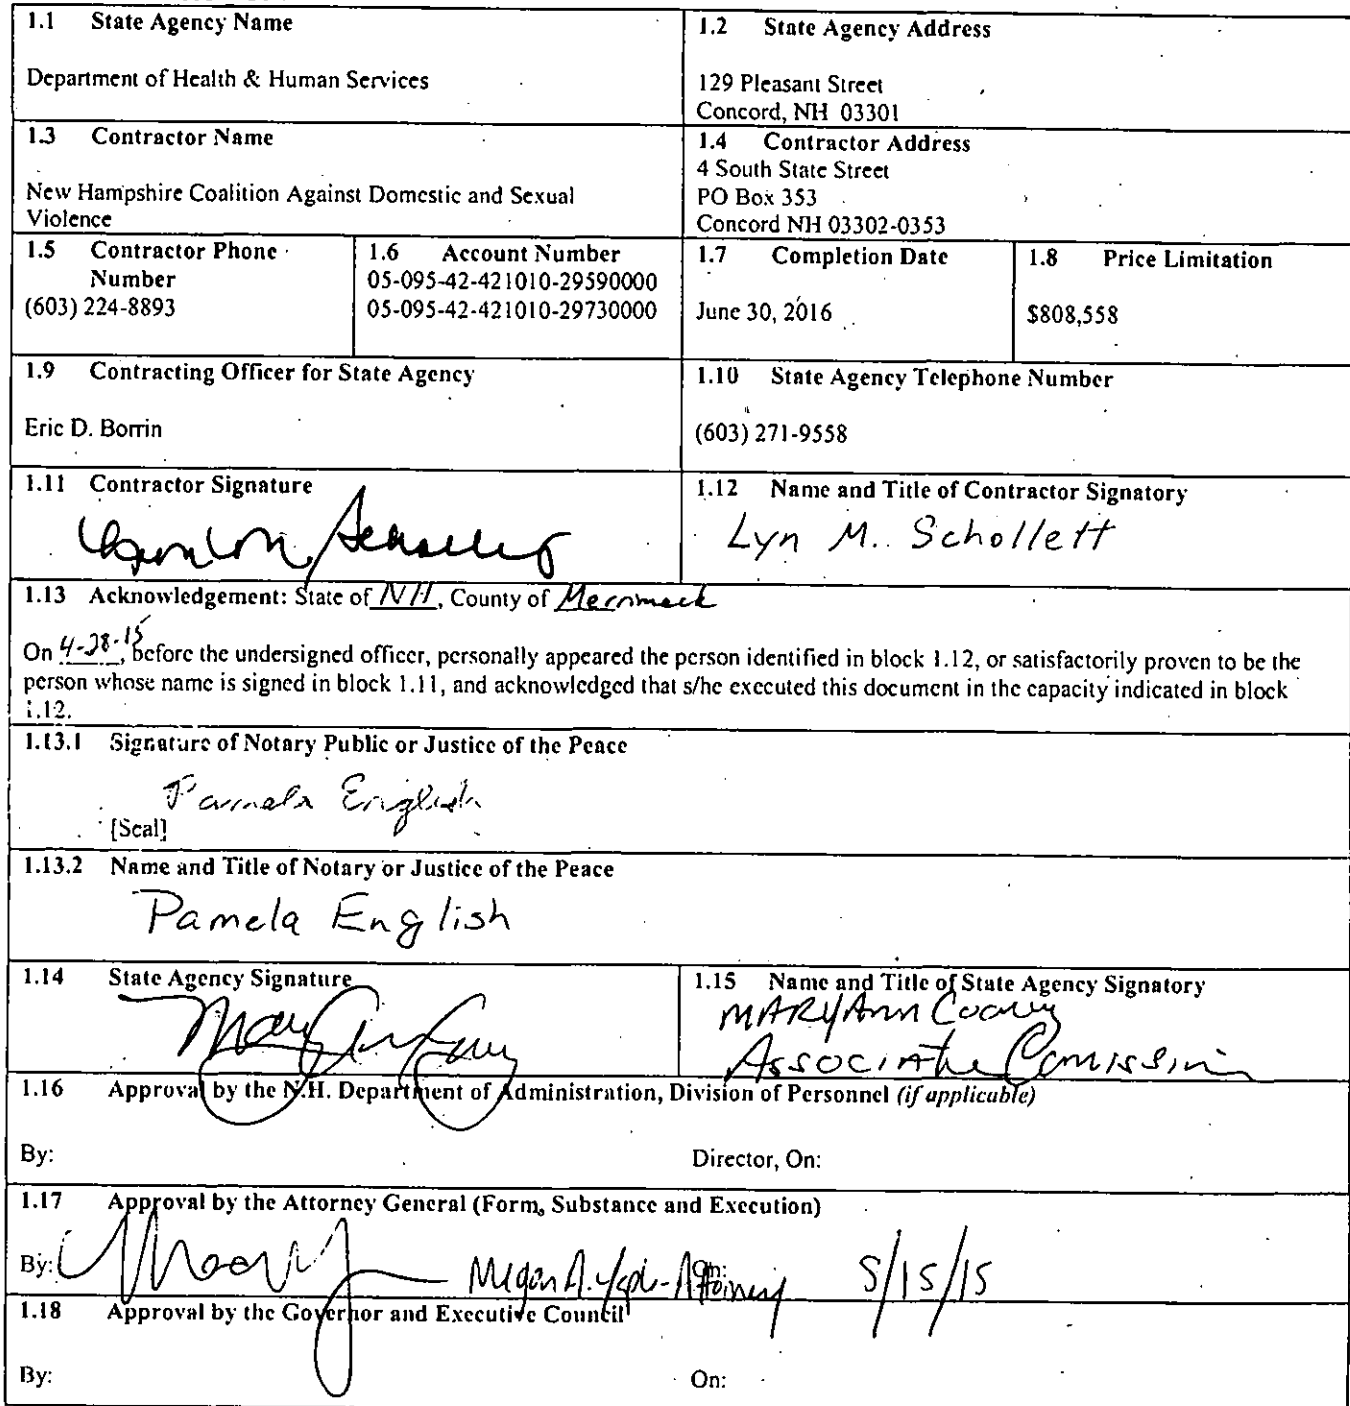 1.1 State Agency Name
Department of Health & Human Services
1.2 State Agency Address
129 Pleasant Street
Concord, NH 03301
1.3 Contractor Name
New Hampshire Coalition Against Domestic and Sexual
Violence
1.4 Contractor Address
4 South State Street
PO Box 353
Concord NH 03302-0353
1.5 Contractor Phone
Number
(603) 224-8893
1.6 Account Number
05-095-42-421010-29590000
05-095-42-421010-29730000
1.7 Completion Date
June 30, 2016
1.8 Price Limitation
$808,558
1.9 Contracting Officer for State Agency
Eric D. Borrin
1.10 State Agency Telephone Number
(603) 271-9558
1.11 Contractor Signature
1.12 Name and Title of Contractor Signatory
Lyn M. Schollett
1.13 Acknowledgement: State of NH, County of Merrimack
On 4-28-15, before the undersigned officer, personally appeared the person identified in block 1.12, or satisfactorily proven to be the
person whose name is signed in block 1.11, and acknowledged that s/he executed this document in the capacity indicated in block
1.12.
1.13.1 Signature of Notary Public or Justice of the Peace
Pamela English
[Seal]
1.13.2 Name and Title of Notary or Justice of the Peace
Pamela English
1.14 State Agency Signature
1.15 Name and Title of State Agency Signatory
MARYANN Cooney
Associate Comission
1.16 Approval by the N.H. Department of Administration, Division of Personnel (if applicable)
By: Director, On:
1.17 Approval by the Attorney General (Form, Substance and Execution)
By: Megan A. - Attorney On: 5/15/15
1.18 Approval by the Governor and Executive Council
By: On: